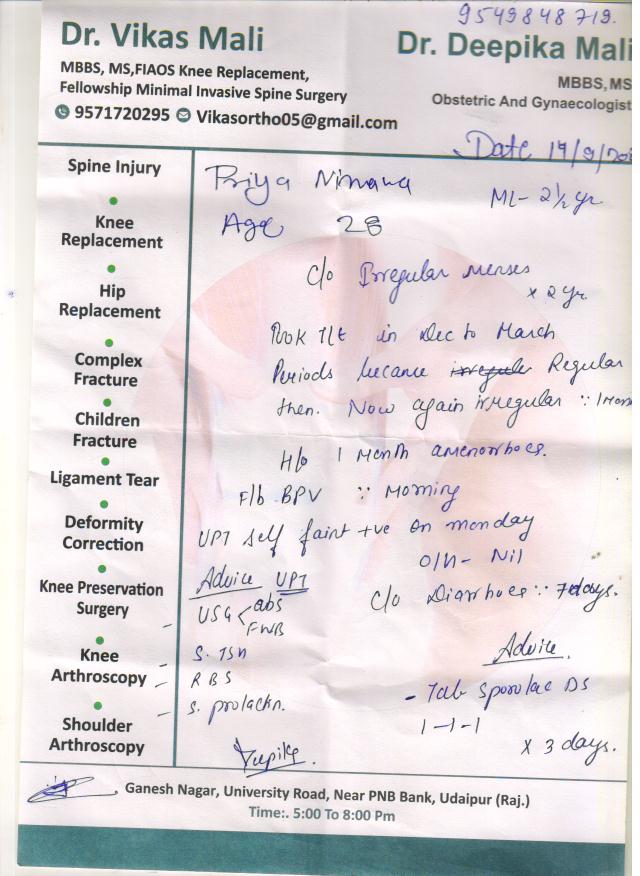 9549848719.
Dr. Vikas Mali
MBBS, MS,FIAOS Knee Replacement,
Fellowship Minimal Invasive Spine Surgery
9571720295 Vikasortho05@gmail.com
Dr. Deepika Mali
MBBS, MS
Obstetric And Gynaecologist
Date 14/9/202
Priya
ML- 2½ yr
Age 28
c/o Irregular menses
x 2 yr.
Took T/t in Dec to March
Periods became irregular Regular
then. Now again irregular ∵ 1 mon
H/o 1 Month amenorrhoea.
F/b BPV ∵ Morning
UPT self faint +ve on monday
O/H- Nil
Advice UPT
c/o Diarrhoea ∵ 7 days.
USG < abs
FWB
- S. TSH
- RBS
- S. prolactn.
Advice.
- Tab Sporolac DS
1-1-1
x 3 days.
Spine Injury
Knee
Replacement
Hip
Replacement
Complex
Fracture
Children
Fracture
Ligament Tear
Deformity
Correction
Knee Preservation
Surgery
Knee
Arthroscopy
Shoulder
Arthroscopy
Ganesh Nagar, University Road, Near PNB Bank, Udaipur (Raj.)
Time:. 5:00 To 8:00 Pm